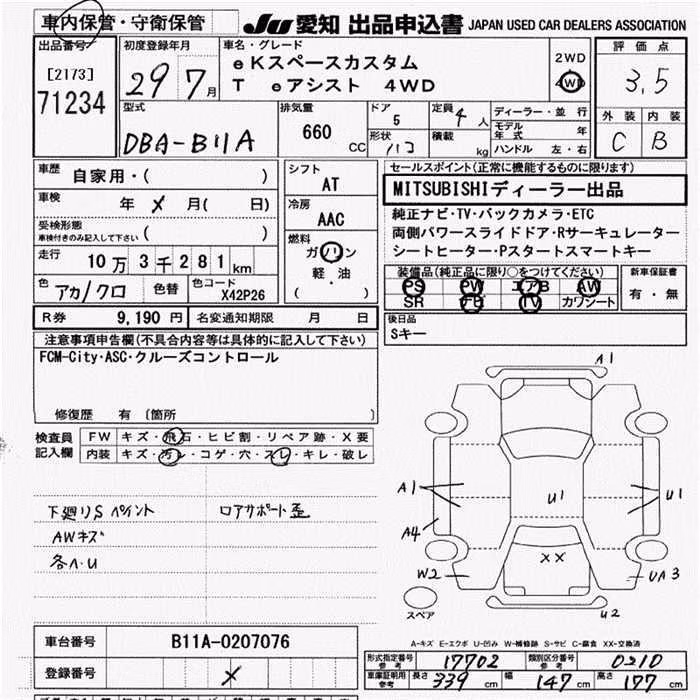 車内保管・守衛保管
JU 愛知 出品申込書 JAPAN USED CAR DEALERS ASSOCIATION
出品番号
[2173]
71234
初度登録年月
29 7月
車名・グレード
eKスペースカスタム
T eアシスト 4WD
2WD
4WD
評価点
3.5
外装 内装
C B
型式
DBA-B11A
排気量
660 CC
ドア
5
形状
バコ
定員 4人
積載 kg
ディーラー・並行
モデル年式 年
ハンドル 左・右
車歴
自家用・( )
車検
年 メ 月( 日)
受検形態
車検付きのみ記入して下さい
( )
走行
10万3千281km
色 アカ/クロ 色替
色コード
X42P26
シフト
AT
冷房
AAC
燃料
ガソリン
軽・油
( )
セールスポイント(正常に機能するものに限ります)
MITSUBISHIディーラー出品
純正ナビ・TV・バックカメラ・ETC
両側パワースライドドア・Rサーキュレーター
シートヒーター・Pスタートスマートキー
装備品(純正品に限り○をつけてください)
PS PW エアB AW
SR ナビ TV カワシート
新車保証書
有・無
R券 9,190円 名変通知期限 月 日
後日品
Sキー
注意事項申告欄(不具合内容等は具体的に記入して下さい)
FCM-City・ASC・クルーズコントロール
修復歴 有 〔箇所
検査員
記入欄
FW キズ・飛石・ヒビ割・リペア跡・X要
内装 キズ・汚レ・コゲ・穴・スレ・キレ・破レ
下廻りS ペイント
ロアサポート歪
AWキズ
各ヘ・U
A1
A1
U1
U1
A4
XX
W2
UA3
U2
スペア
A-キズ E-エクボ U-凹み W-補修跡 S-サビ C-腐食 XX-交換済
車台番号 B11A-0207076
登録番号 メ
形式指定番号
参考
17702
類別区分番号
参考
0210
車庫証明用
参考
長さ 339cm
幅 147cm
高さ 177cm